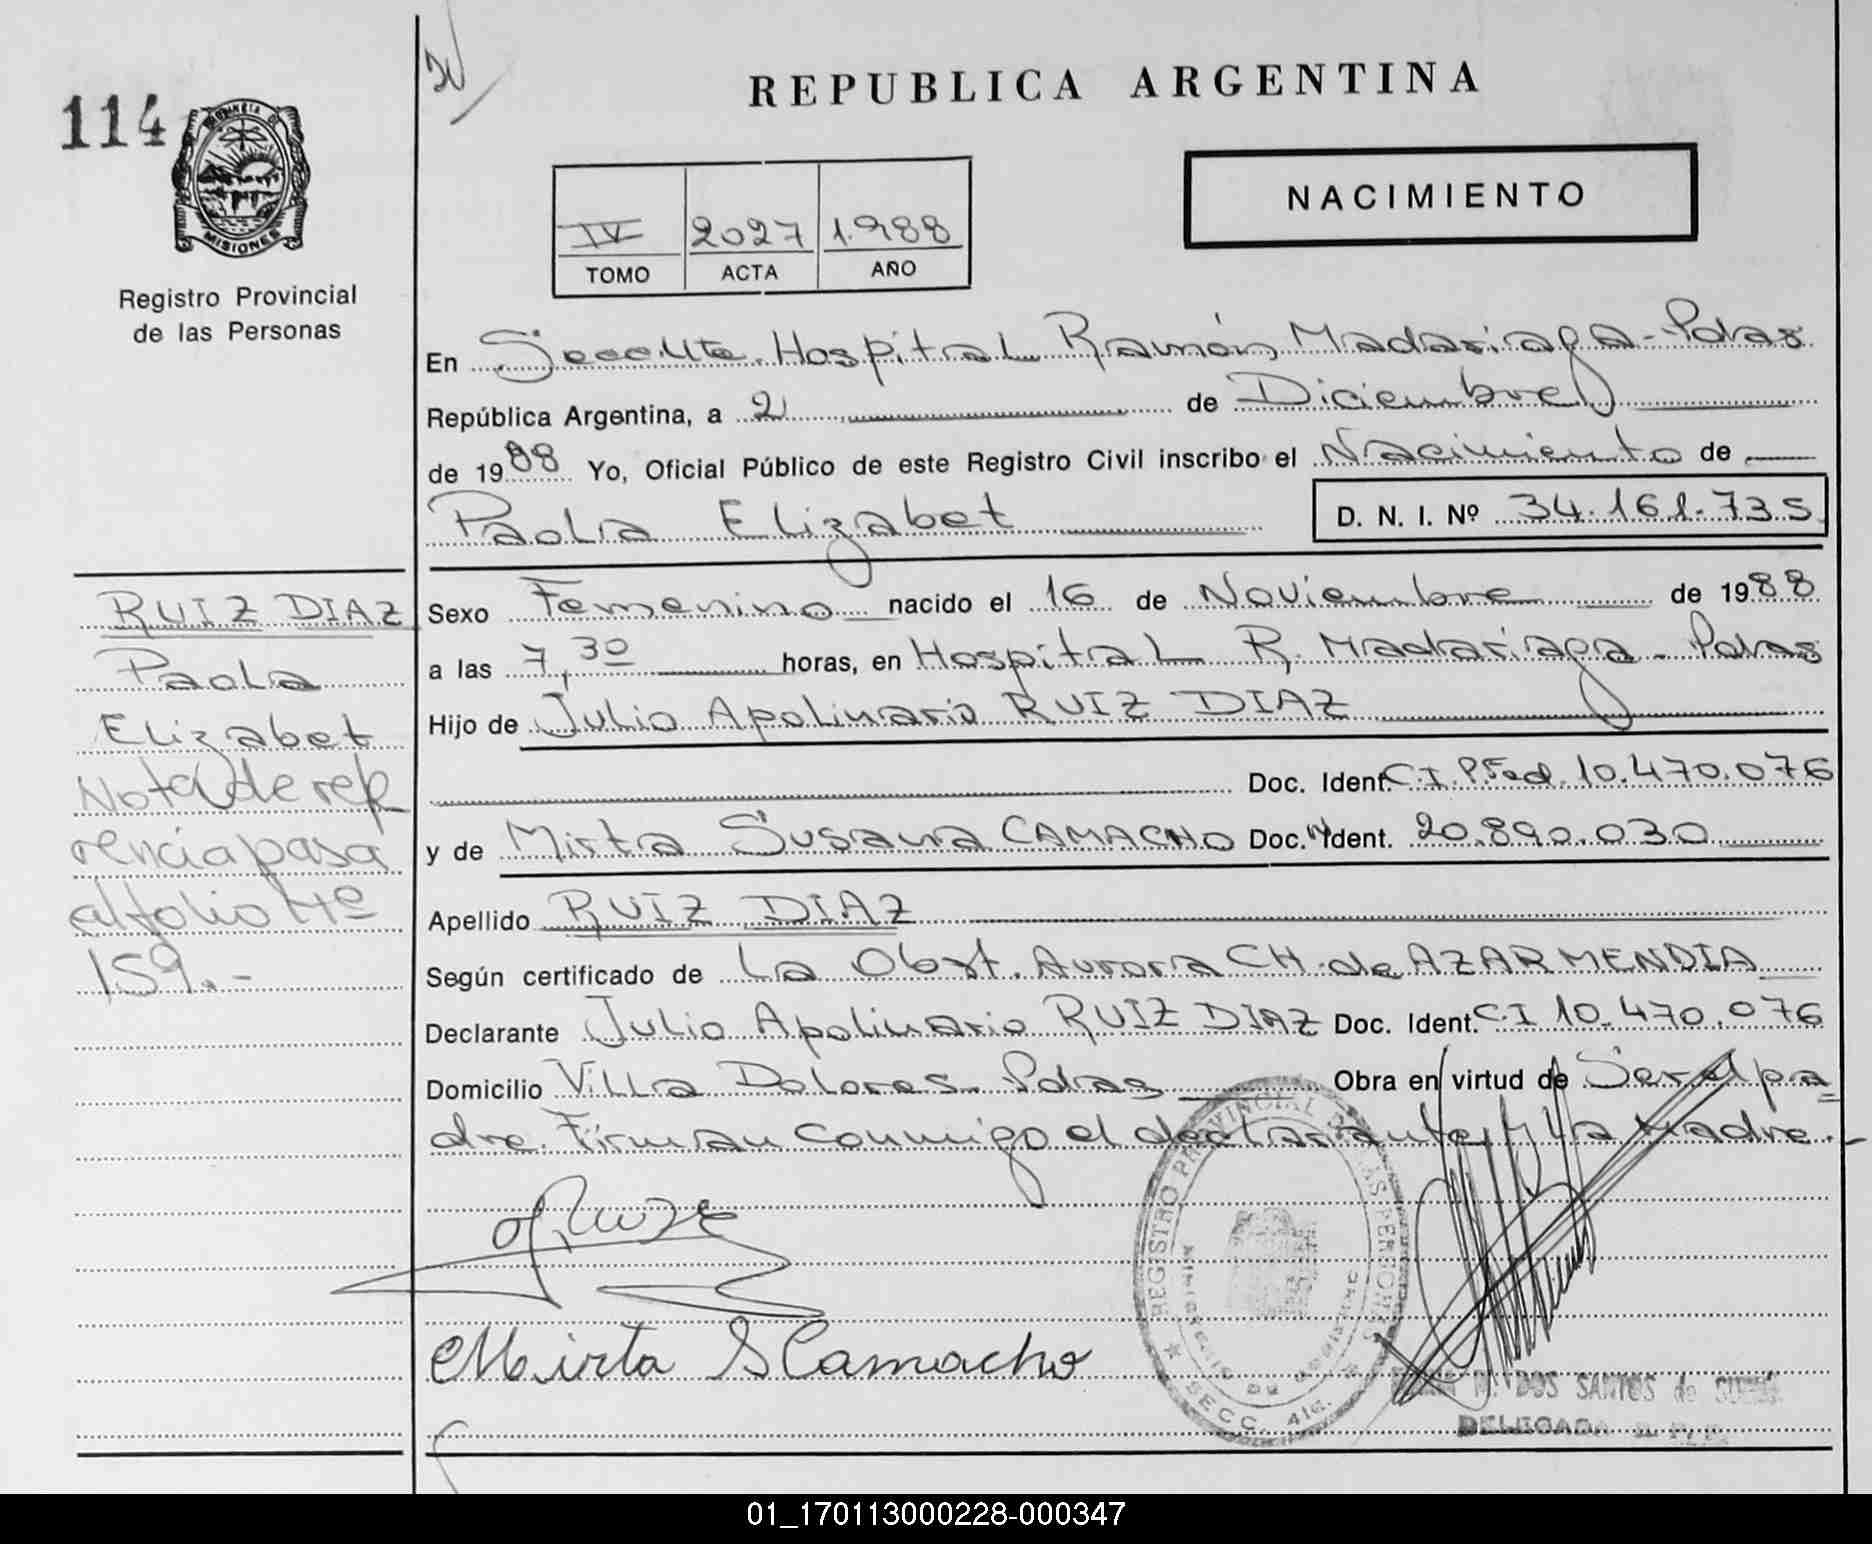 114
PROVINCIA DE
MISIONES
Registro Provincial
de las Personas
REPUBLICA ARGENTINA
NACIMIENTO
IV 2027 1.988
TOMO ACTA AÑO
En Secc. Hospital Ramón Madariaga - Pdas
República Argentina, a 2 de Diciembre
de 1988 Yo, Oficial Público de este Registro Civil inscribo el Nacimiento de
Paola Elizabet D. N. I. Nº 34.161.735
Sexo Femenino nacido el 16 de Noviembre de 1988
a las 7,30 horas, en Hospital R. Madariaga - Pdas
Hijo de Julio Apolinario RUIZ DIAZ
Doc. Ident. C.I. P. Fed. 10.470.076
y de Mirta Susana CAMACHO Doc. Ident. 20.890.030
Apellido RUIZ DIAZ
Según certificado de La Obst. Aurora CH. de AZARMENDIA
Declarante Julio Apolinario RUIZ DIAZ Doc. Ident. C I 10.470.076
Domicilio Villa Dolores - Pdas Obra en virtud de Ser el pa
dre. Firman conmigo el declarante y la Madre.-
RUIZ DIAZ
Paola
Elizabet
Nota de refe
rencia pasa
al folio Nº
159.-
Mirta S Camacho
REGISTRO PROVINCIAL DE LAS PERSONAS
MINISTERIO DE GOBIERNO
SECC. 4ta.
DOS SANTOS de
DELEGADA R. P. P.
01_170113000228-000347